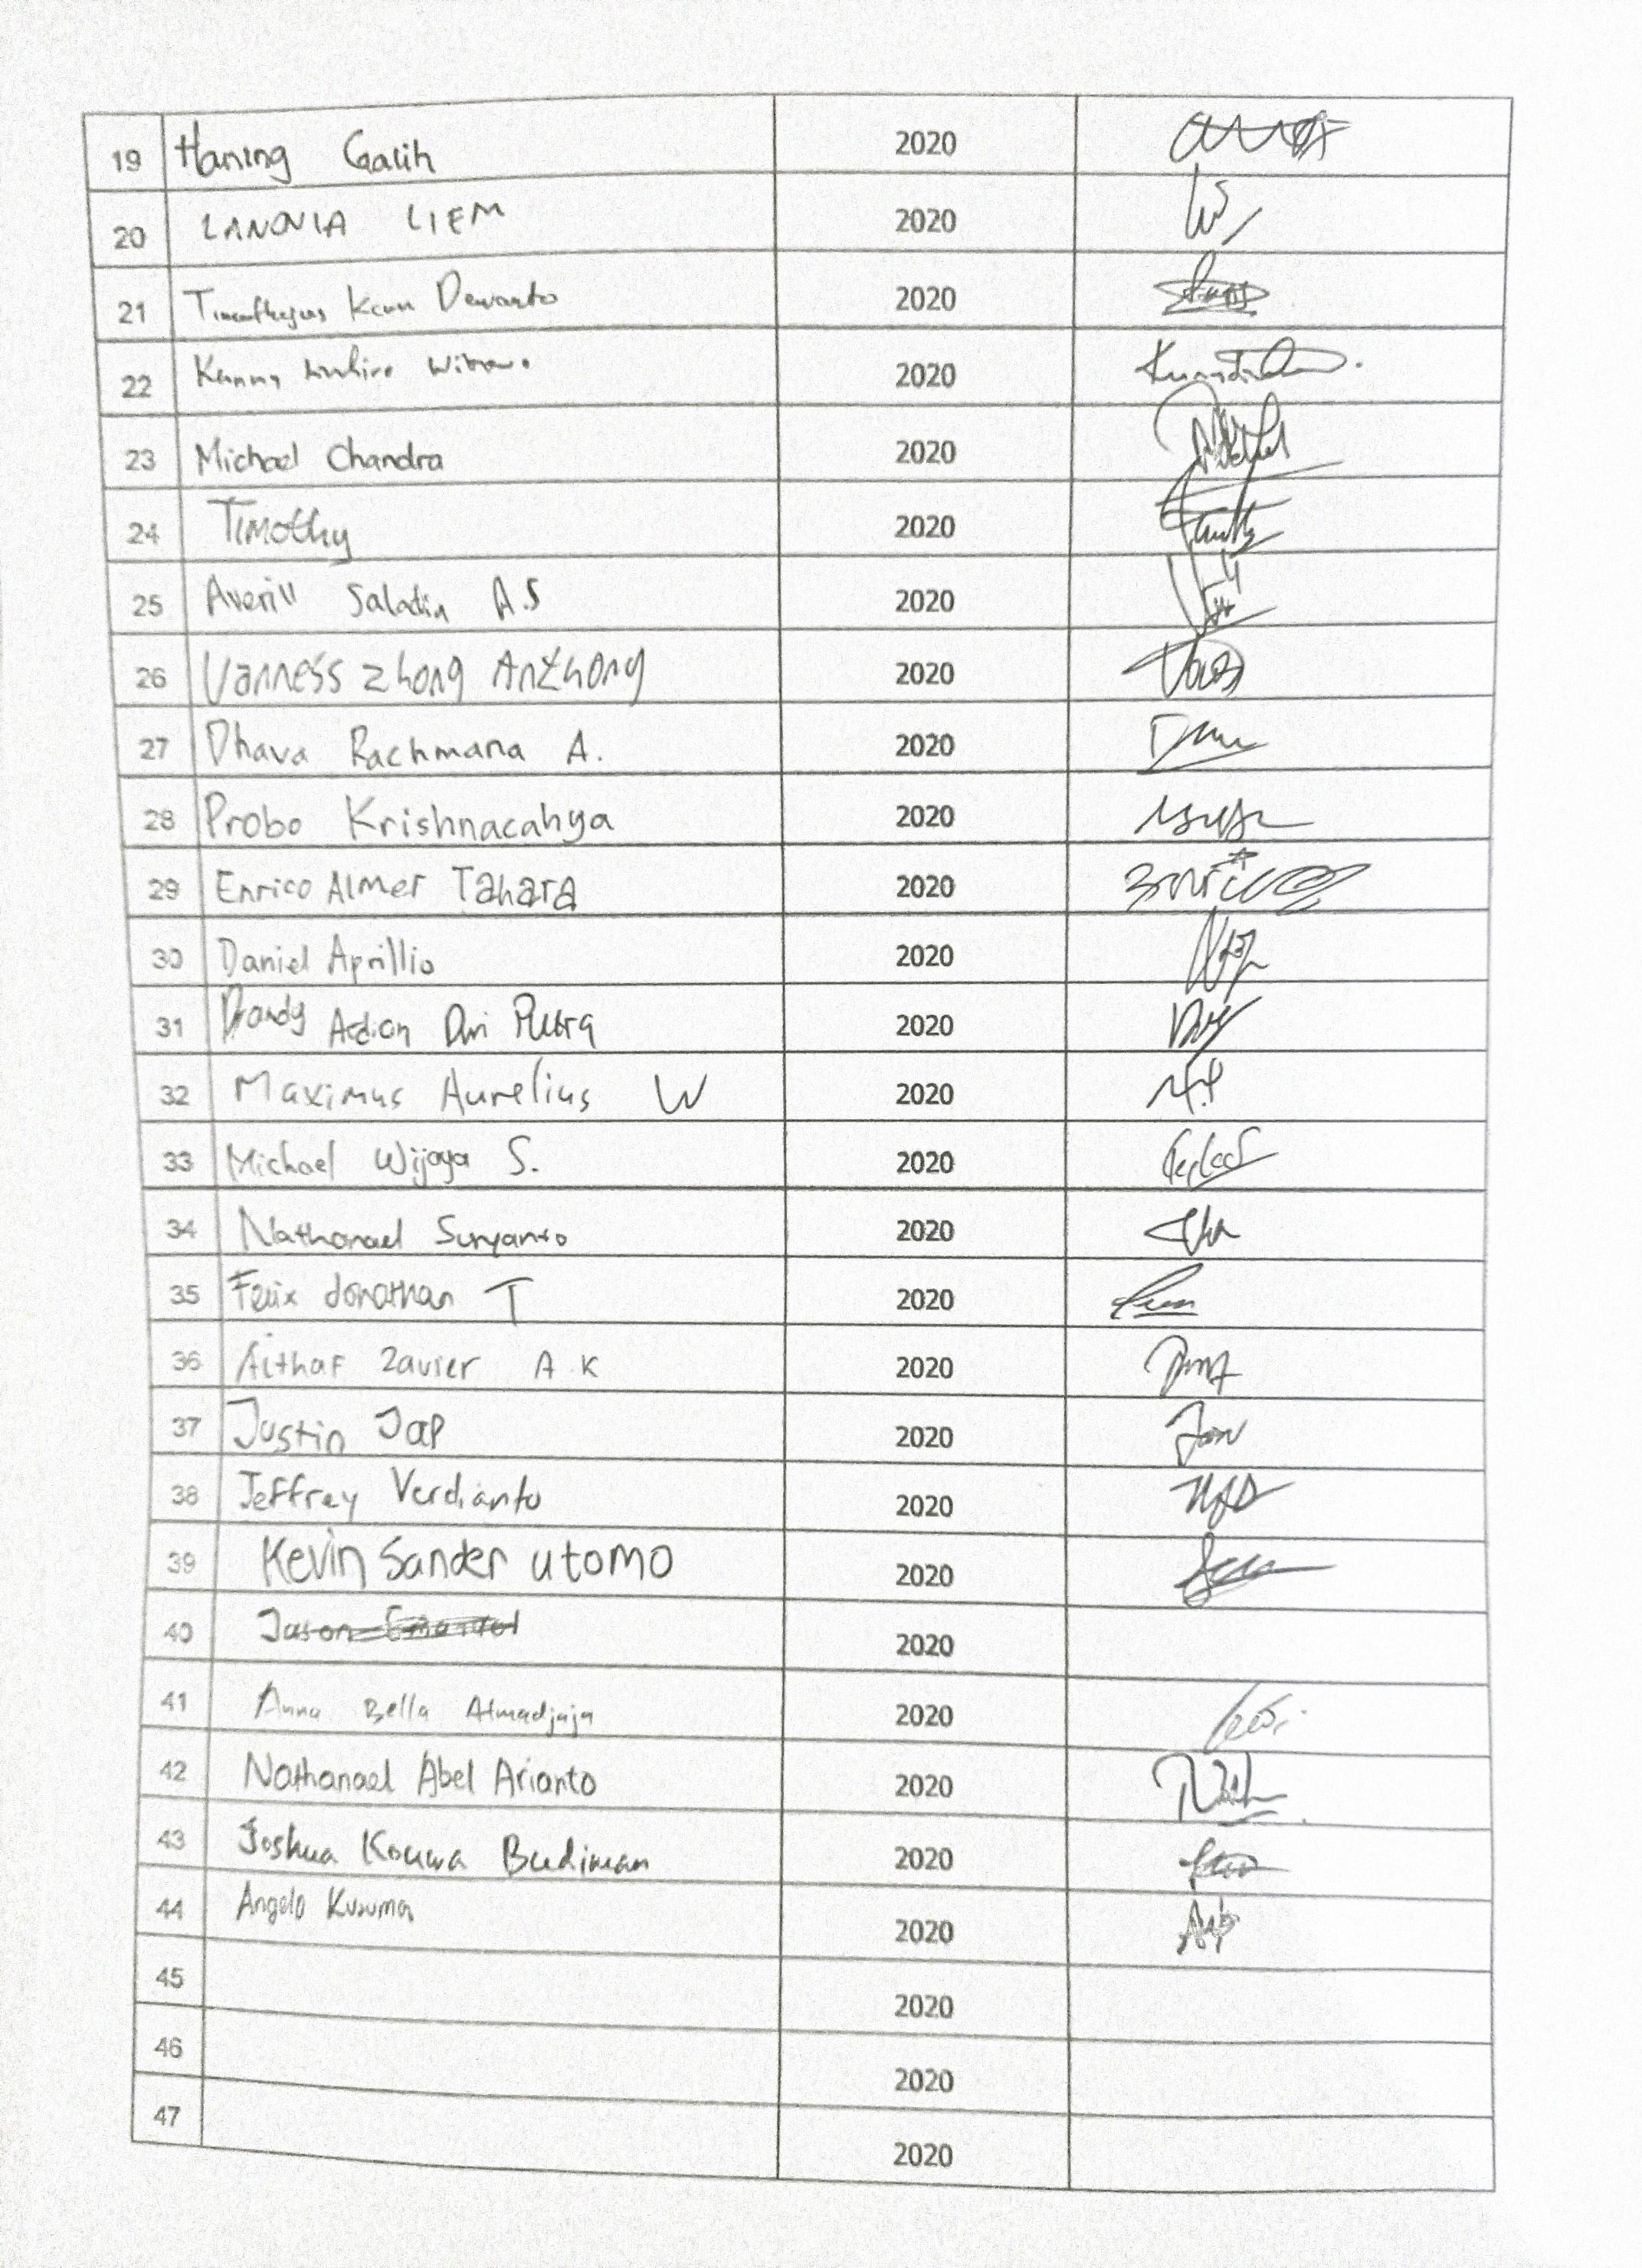 19 Haning Galih 2020
20 LANOVIA LIEM 2020
21 Keun Dewanto 2020
22 2020
23 Michael Chandra 2020
24 Timothy 2020
25 Averill Saladin A.S 2020
26 Vanness Zhong Anthony 2020
27 Dhava Rachmana A. 2020
28 Probo Krishnacahya 2020
29 Enrico Almer TAHARA 2020
30 Daniel Aprillio 2020
31 Ardian Dwi Putra 2020
32 Maximus Aurelius W 2020
33 Michael Wijaya S. 2020
34 Nathanael Suryanto 2020
35 Felix Jonathan T 2020
36 Althaf Zavier A.K 2020
37 Justin Jap 2020
38 Jeffrey Verdianto 2020
39 Kevin Sander utomo 2020
40 Jason 2020
41 Anna Bella Atmadjaja 2020
42 Nathanael Abel Arianto 2020
43 Joshua Kouwa Budiman 2020
44 Angelo Kusuma 2020
45 2020
46 2020
47 2020